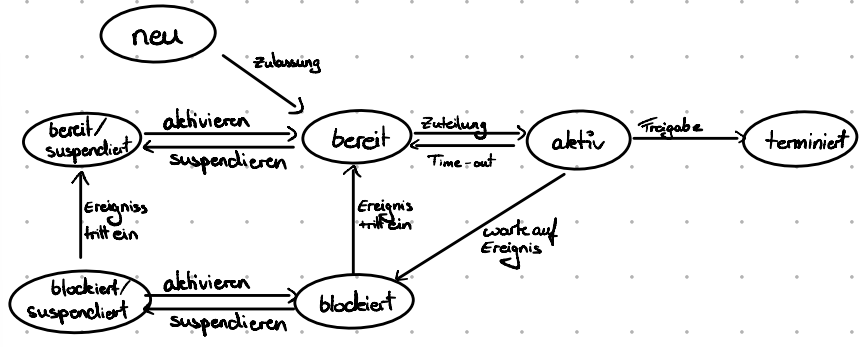 neu
Zulassung
bereit/
suspendiert
aktivieren
suspendieren
bereit
Zuteilung
Time-out
aktiv
Freigabe
terminiert
Ereigniss
tritt ein
Ereignis
tritt ein
warte auf
Ereignis
blockiert/
suspendiert
aktivieren
suspendieren
blockiert